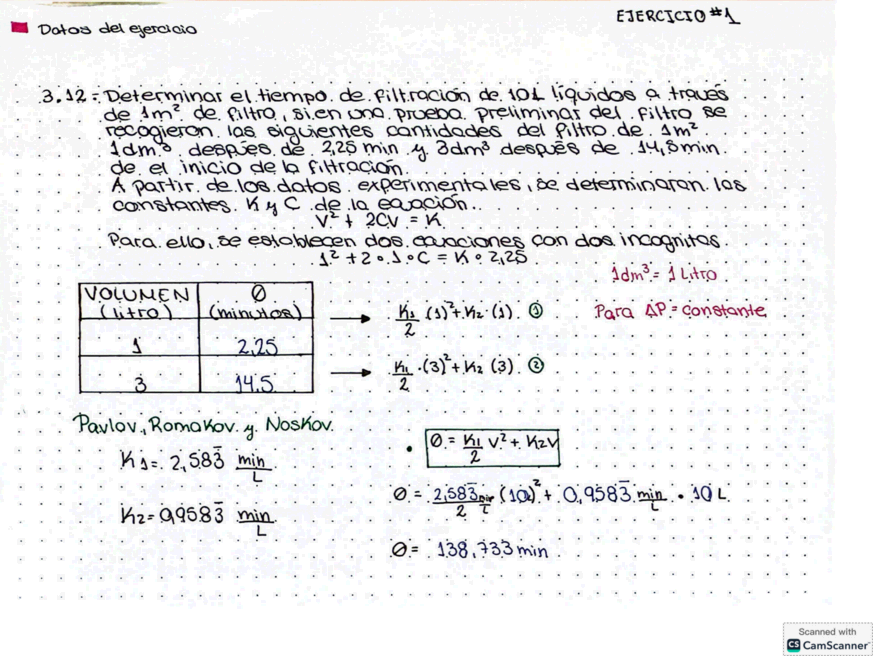 EJERCICIO #1
Datos del ejercicio
3.12.- Determinar el tiempo de filtración de 10L líquidos a través
de 1m² de filtro, si en una prueba preliminar del filtro se
recogieron las siguientes cantidades del filtro de 1m².
1dm³ después de 2,25 min y 3dm³ después de 14,5 min
de el inicio de la filtración.
A partir de los datos experimentales, se determinaran las
constantes K y C de la ecuación.
V² + 2CV = K
Para ello, se establecen dos ecuaciones con dos incognitas.
1² + 2 • 1 • C = K • 2,25
1dm³ = 1 Litro
Para ΔP = constante
VOLUMEN (litro) Ø (minutos)
1 2,25
3 14,5
→ K1/2 (1)² + K2 · (1) ①
→ K1/2 · (3)² + K2 (3) ②
Pavlov, Romakov y Noskov.
K1 = 2,583̄ min/L
K2 = 0,9583̄ min/L
• Ø = K1/2 V² + K2V
Ø = 2,583̄ min/L /2 (10L)² + 0,9583̄ min/L • 10 L
Ø = 138,733 min
Scanned with
CS CamScanner